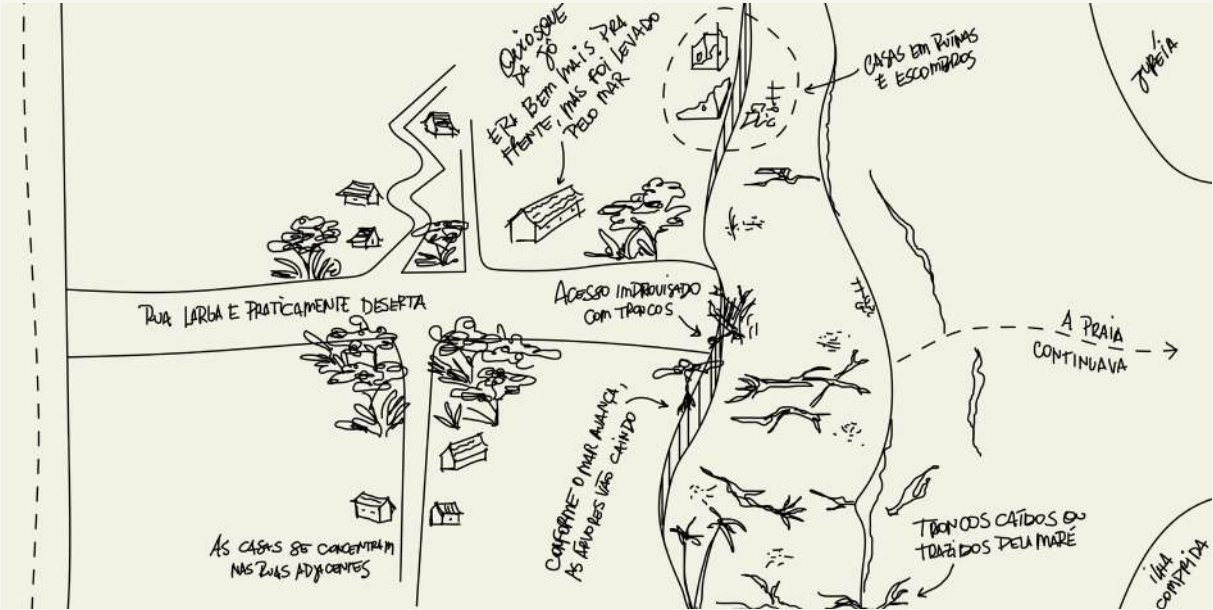 QUIOSQUE
DA JÔ
ERA BEM MAIS PRA
FRENTE, MAS FOI LEVADO
PELO MAR
CASAS EM RUÍNAS
E ESCOMBROS
JUREIA
RUA LARGA E PRATICAMENTE DESERTA
ACESSO IMPROVISADO
COM TRONCOS
A PRAIA
CONTINUAVA
CONFORME O MAR AVANÇA,
AS ÁRVORES VÃO CAINDO
AS CASAS SE CONCENTRAM
NAS RUAS ADJACENTES
TRONCOS CAÍDOS OU
TRAZIDOS PELA MARÉ
ILHA
COMPRIDA